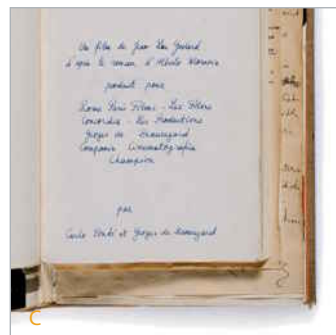 Un film de Jean Luc Godard
d'après le roman d'Alberto Moravia
produit pour
Rome Paris Films - Les Films
Concordia - Les Productions
Georges de Beauregard
Compagnia Cinematografica
Champion
par
Carlo Ponti et Georges de Beauregard
C